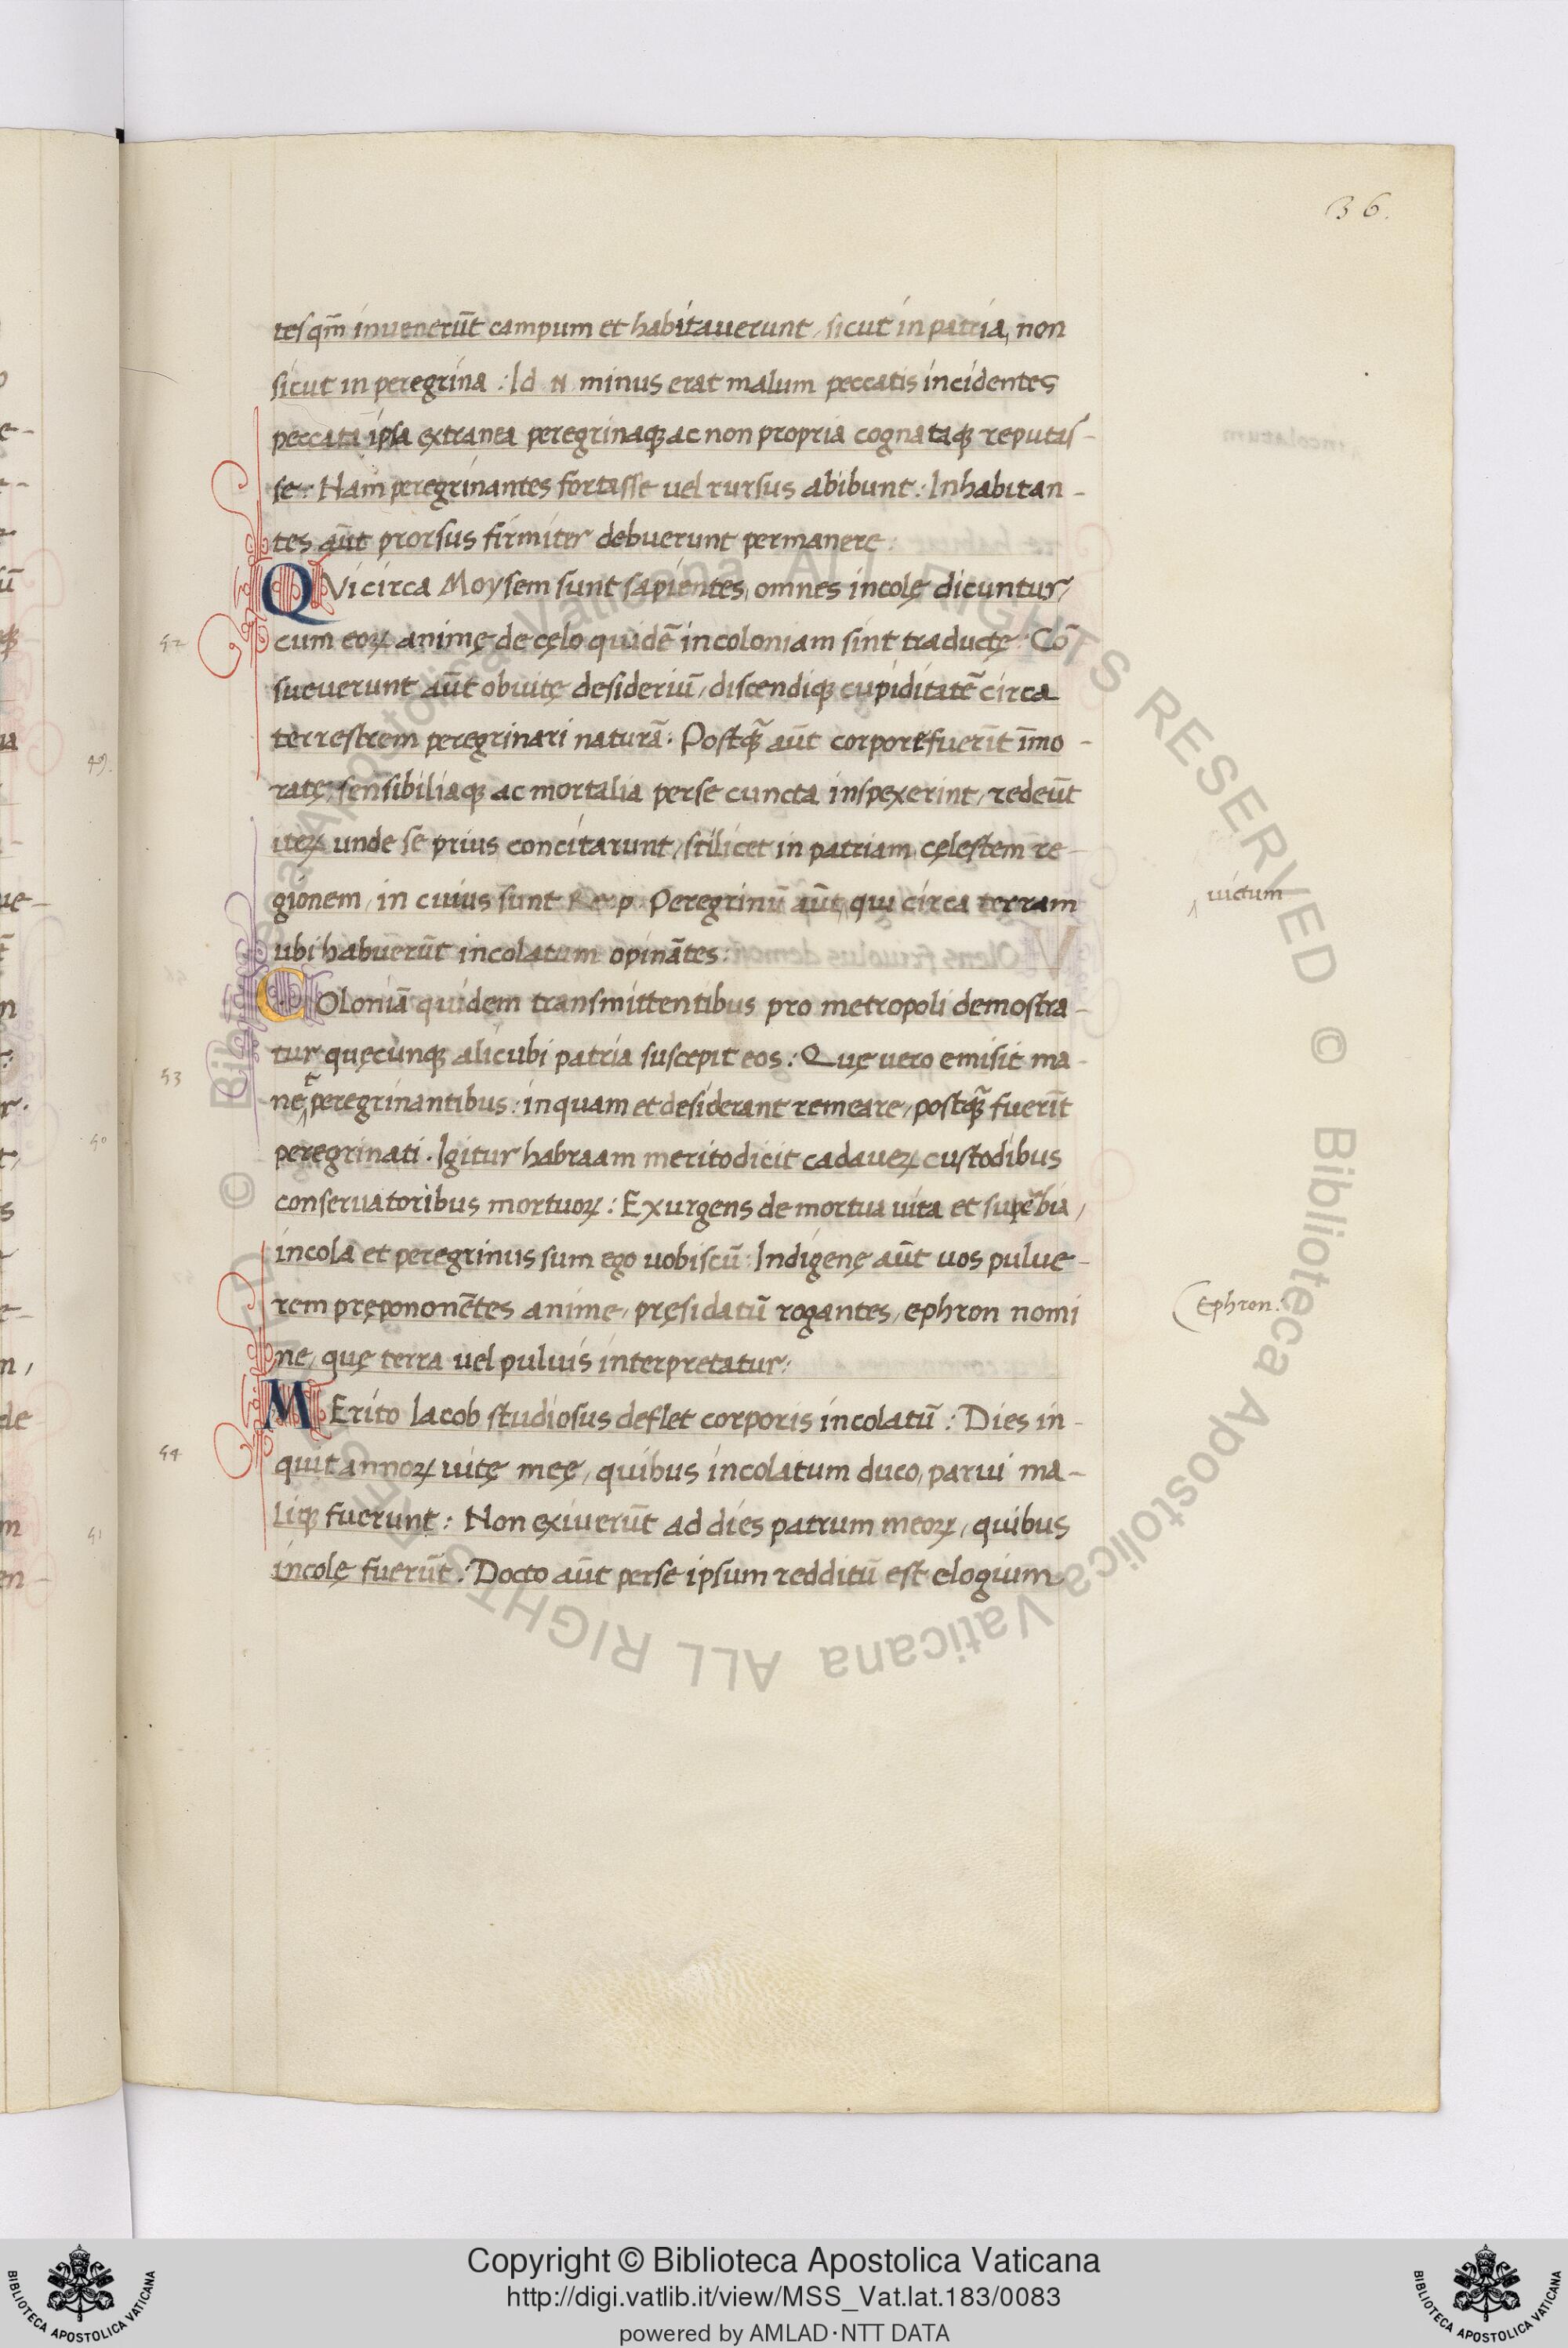 36.
tes qm̄ invenerūt campum et habitaverunt, sicut in patria, non
sicut in peregrina : Id N minus erat malum peccatis incidentes
peccata ipsa extranea peregrinaqꝫ ac non propria cognataqꝫ reputas-
se. Nam peregrinantes fortasse uel rursus abibunt : Inhabitan-
tes aūt prorsus firmiter debuerunt permanere :
QVi circa Moysem sunt sapientes, omnes incolę dicuntur,
52
cum eoꝝ animę de cęlo quidē in coloniam sint traductę : Cō
sueuerunt aūt obuitę desideriū, discendiqꝫ cupiditatē circa
terrestrem peregrinari naturā : Postqꝫ̄ aūt corpore fuerīt īmo-
ratę, sensibiliaqꝫ ac mortalia per se cuncta inspexerint, redeūt
iteꝝ unde se prius concitarunt, scilicet in patriam cęlestem re-
gionem, in cuius sunt Re. p. Peregrinū aūt, qui circa terram
uictum
ubi habuerūt incolatum opinātes :
COloniā quidem transmittentibus pro metropoli demostra-
tur quęcunqꝫ alicubi patria suscepit eos : Quę uero emisit ma-
53
net peregrinantibus : in quam et desiderant remeare, postqꝫ̄ fuerīt
peregrinati. Igitur habraam merito dicit cadaueꝝ custodibus
conseruatoribus mortuoꝝ : Exurgens de mortua uita et supebia,
incola et peregrinus sum ego uobiscū : Indigenę aūt uos pulue-
rem pręponoñētes anime, pręsidatū rogantes, ephron nomi
Ephron :
ne, quę terra uel puluis interpretatur :
MErito Iacob studiosus deflet corporis incolatū : Dies in-
54
quit annoꝝ uitę meę, quibus incolatum duco, parui ma-
liqꝫ fuerunt : Non exiuerūt ad dies patrum meoꝝ, quibus
incolę fuerūt : Docto aūt per se ipsum redditū est elogium
Copyright © Biblioteca Apostolica Vaticana
http://digi.vatlib.it/view/MSS_Vat.lat.183/0083
powered by AMLAD·NTT DATA